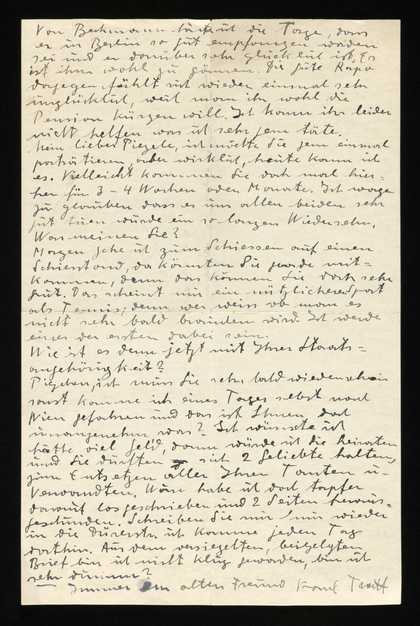 Von Beckmann hört ich die Tage, dass
er in Berlin so gut empfangen worden
sei und er darüber sehr glücklich ist. Es
ist ihm wohl zu gönnen. Die gute
dagegen fühlt sich wieder einmal sehr
unglücklich, weil man ihr wohl die
Pension kürzen will. Ich kann ihr leider
nicht helfen was ich sehr gern täte.
Mein liebes ich möchte Sie gern einmal
porträtieren, aber wirklich, heute kann ich
es. Vielleicht kommen Sie doch mal hier-
her für 3-4 Wochen oder Monate. Ich wage
zu glauben dass er uns allen beiden sehr
gut tuen würde ein so langes Wiedersehn.
Was meinen Sie?
Morgen gehe ich zum Schiessen auf einen
Schiesstand, da könnten Sie gerade mit-
kommen, denn das können Sie doch sehr
gut. Das scheint mir ein nützlicherer Sport
als Tennis; denn wer weiss ob man es
nicht sehr bald brauchen wird. Ich werde
einer der ersten dabei sein.
Wie ist es denn jetzt mit Ihrer Staats-
angehörigkeit?
ich muss Sie sehr bald wiedersehen
sonst komme ich eines Tages selbst nach
Wien gefahren und das ist Ihnen doch
unangenehm, was? Ich wünschte ich
hätte viel Geld, dann würde ich Sie heiraten
und Sie dürften sich 2 Geliebte halten,
zum Entsetzen aller Ihrer Tanten u-
Verwandten. Nun habe ich doch tapfer
darauf los geschrieben und 2 Seiten
Schreiben Sie mir nur wieder
in die Dürerstr. ich komme jeden Tag
dorthin. Aus dem versiegelten, beigelegten
Brief bin ich nicht klug geworden, bin ich
sehr dumm?
Immer Ihr alter Freund